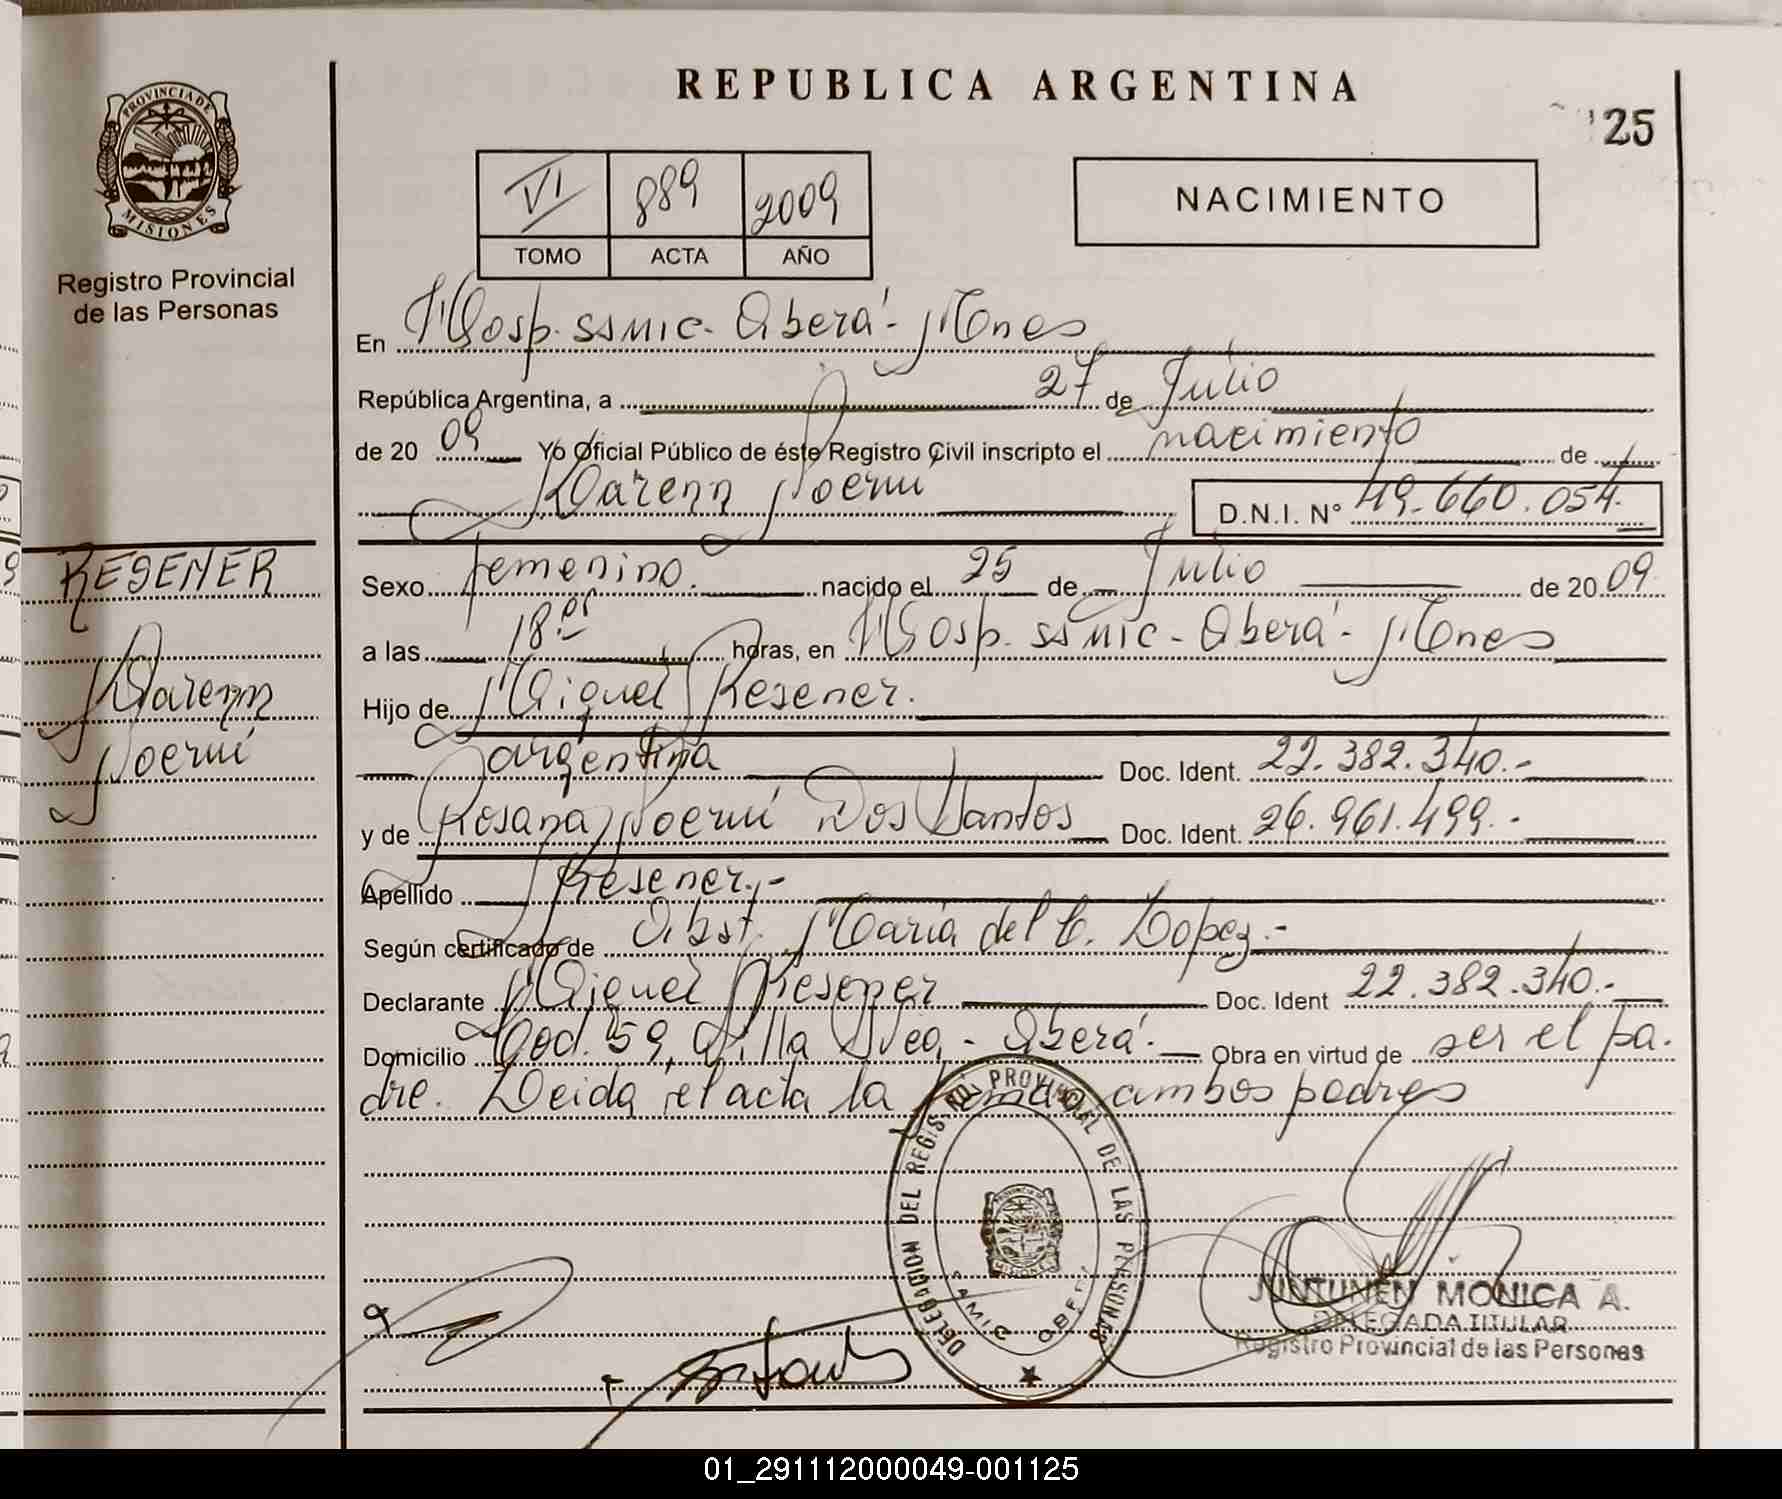 REPUBLICA ARGENTINA
125
PROVINCIA DE
MISIONES
Registro Provincial
de las Personas
VI 889 2009
TOMO ACTA AÑO
NACIMIENTO
En Hosp. SSMIC- Oberá- Mnes
República Argentina, a 27 de Julio
de 20 09 Yo Oficial Público de éste Registro Civil inscripto el nacimiento de
Karenn Noemí
D.N.I. Nº 49.660.054.
RESENER
Karenn
Noemí
Sexo femenino. nacido el 25 de Julio de 20 09.
a las 18.05 horas, en Hosp. SSMIC- Oberá- Mnes
Hijo de Miguel Resener.
argentina Doc. Ident. 22.382.340.-
y de Rosana Noemí Dos Santos Doc. Ident. 26.961.499.-
Apellido Resener.-
Según certificado de Obst. María del C. Lopez.-
Declarante Miguel Resener Doc. Ident 22.382.340.-
Domicilio 59, Villa Oberá.- Obra en virtud de ser el pa-
dre. Leida el acta la firman ambos padres
DELEGACION DEL REGISTRO PROVINCIAL DE LAS PERSONAS
MISIONES
OBERA
JUNTUNEN MONICA A.
DELEGADA TITULAR
Registro Provincial de las Personas
01_291112000049-001125